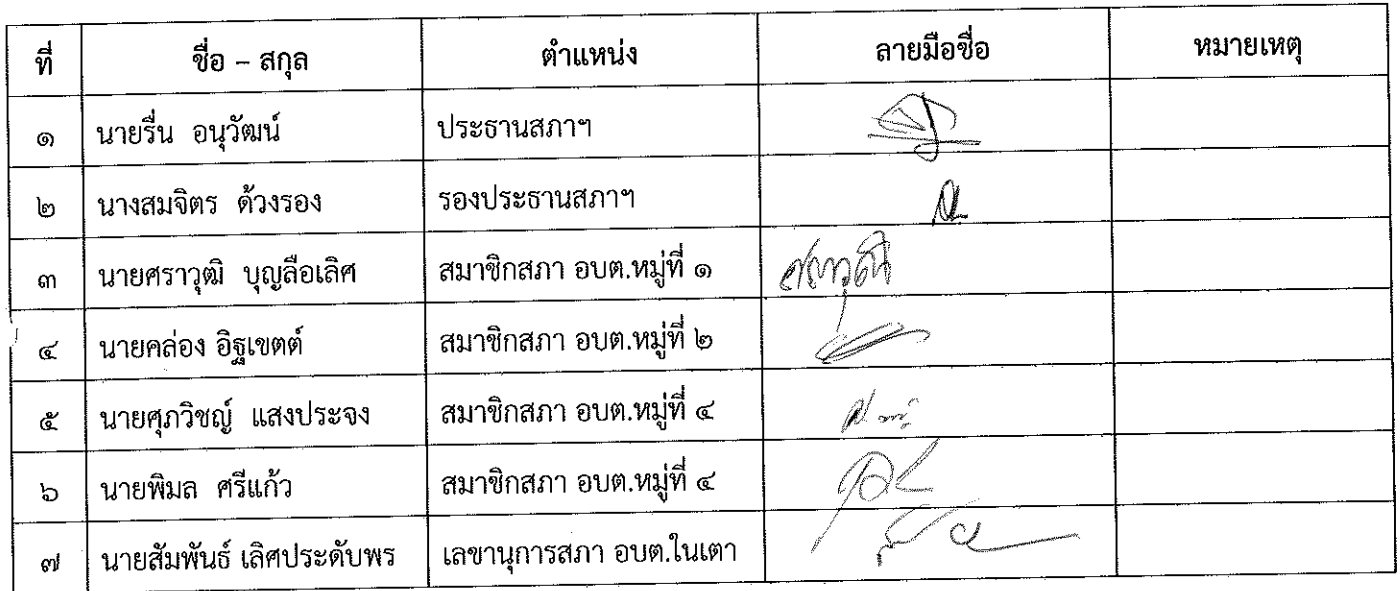 ที่ ชื่อ – สกุล ตำแหน่ง ลายมือชื่อ หมายเหตุ
๑ นายรื่น อนุวัฒน์ ประธานสภาฯ
๒ นางสมจิตร ด้วงรอง รองประธานสภาฯ
๓ นายศราวุฒิ บุญลือเลิศ สมาชิกสภา อบต.หมู่ที่ ๑ ศราวุฒิ
๔ นายคล่อง อิฐเขตต์ สมาชิกสภา อบต.หมู่ที่ ๒
๕ นายศุภวิชญ์ แสงประจง สมาชิกสภา อบต.หมู่ที่ ๔
๖ นายพิมล ศรีแก้ว สมาชิกสภา อบต.หมู่ที่ ๔
๗ นายสัมพันธ์ เลิศประดับพร เลขานุการสภา อบต.ในเตา